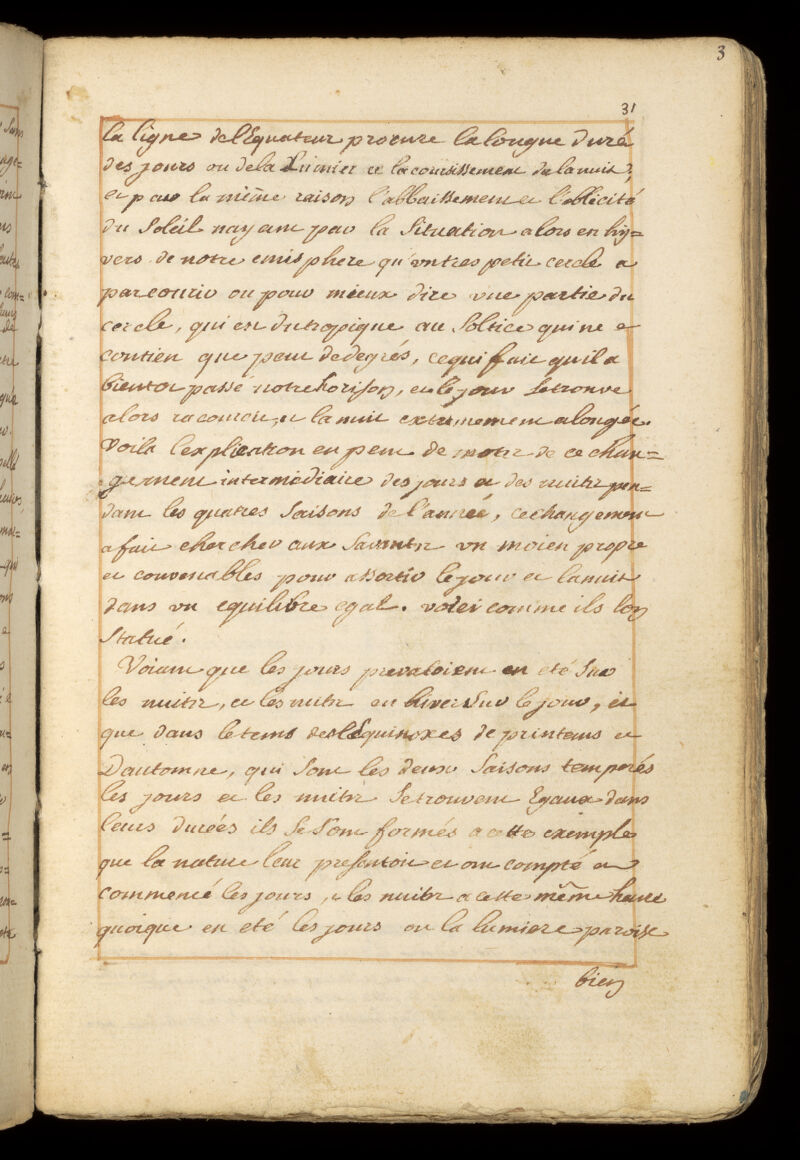 3
31
la ligne de l'Equateur procure la longue duré
des jours ou de la Lumier et lacourcissement de la nuit,
et par la même raison l'abbaissement et l'oblicité
du Soleil nayant par la Situation alors en hy=
vers de notre emisphere qu'un tres petit cercle a
parcourir ou pour mieux dire une partie du
cercle, qui est du tropique au Solstice qui ne
contien que peut de degrés, ce qui fait qu'il a
bientot passé notre horison, et le jour se trouve
alors racourci, et la nuit extremement alongée.
Voila l'explication en peut de mots de ce chan=
gement intermediaire des jours et des nuits pen=
dant les quatres Saisons de l'année, ce changement
a fait chercher aux Savants un moien propre
et convenables pour assortir le jour et la nuit
dans un equilibre egal. voici comme ils lon
Statué.
Voiant que les jours prevaloient en eté Sur
les nuits, et les nuits en hiver Sur le jour, et
que dans le tems des Equinoxes de printems et
D'automne, qui Sont les deux Saisons temperés
les jours et les nuits Se trouvent Egaux dans
leurs durées ils Se Sont formés a cette exemple
que la nature leur presentoit et ont compté et
commencé les jours, et les nuits a cette même heure
quoique en eté les jours ou la lumiere paroise
bien